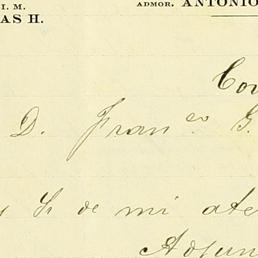 I. M.
ADMOR. ANTONIO
AS H.
Co
D. Franco G.
S. de mi ate
Adjun